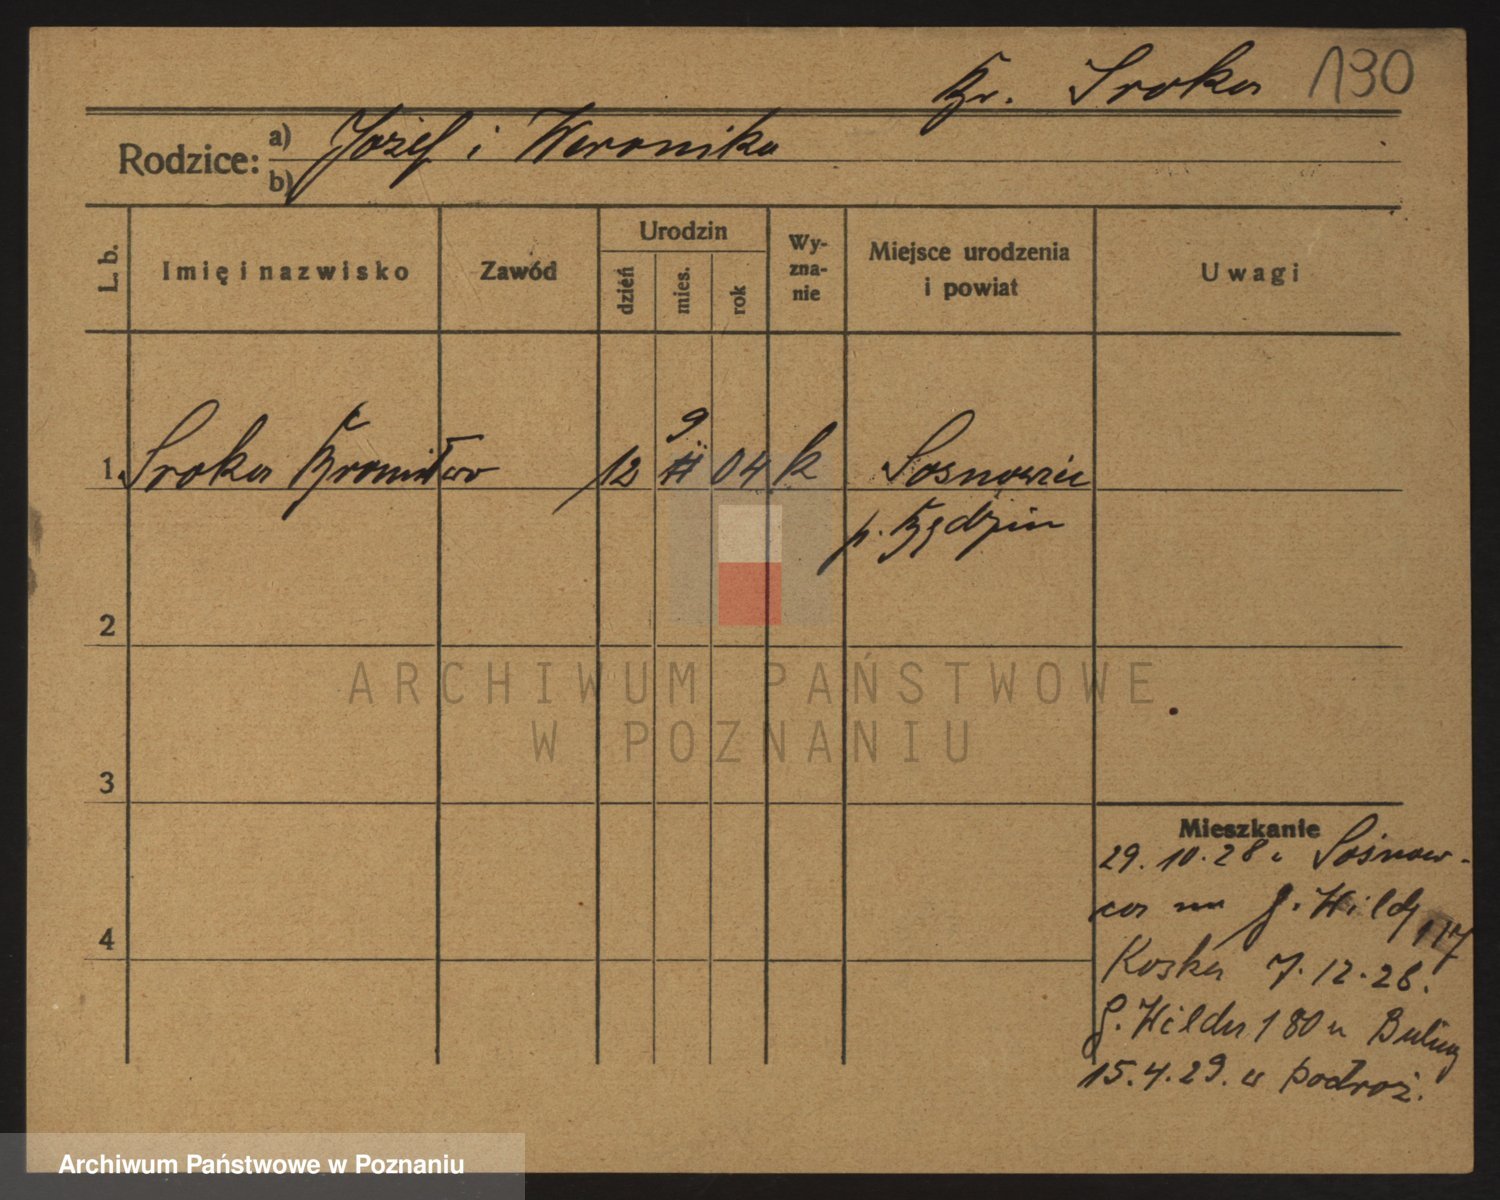 Br. Sroka 130
Rodzice: a) Józef i Weronika
b)
L. b.
Imię i nazwisko
Zawód
Urodzin
dzień
mies.
rok
Wy-
zna-
nie
Miejsce urodzenia
i powiat
Uwagi
9
1. Sroka Bronisława 12 04 k Sosnowiec
p. Będzin
2
ARCHIWUM PAŃSTWOWE
W POZNANIU
3
Mieszkanie
29.10.28 z Sosnow-
ca na G. Wildę 117
Koska 7.12.28.
G. Wilda 180 u
15.4.29. w podróż.
4
Archiwum Państwowe w Poznaniu